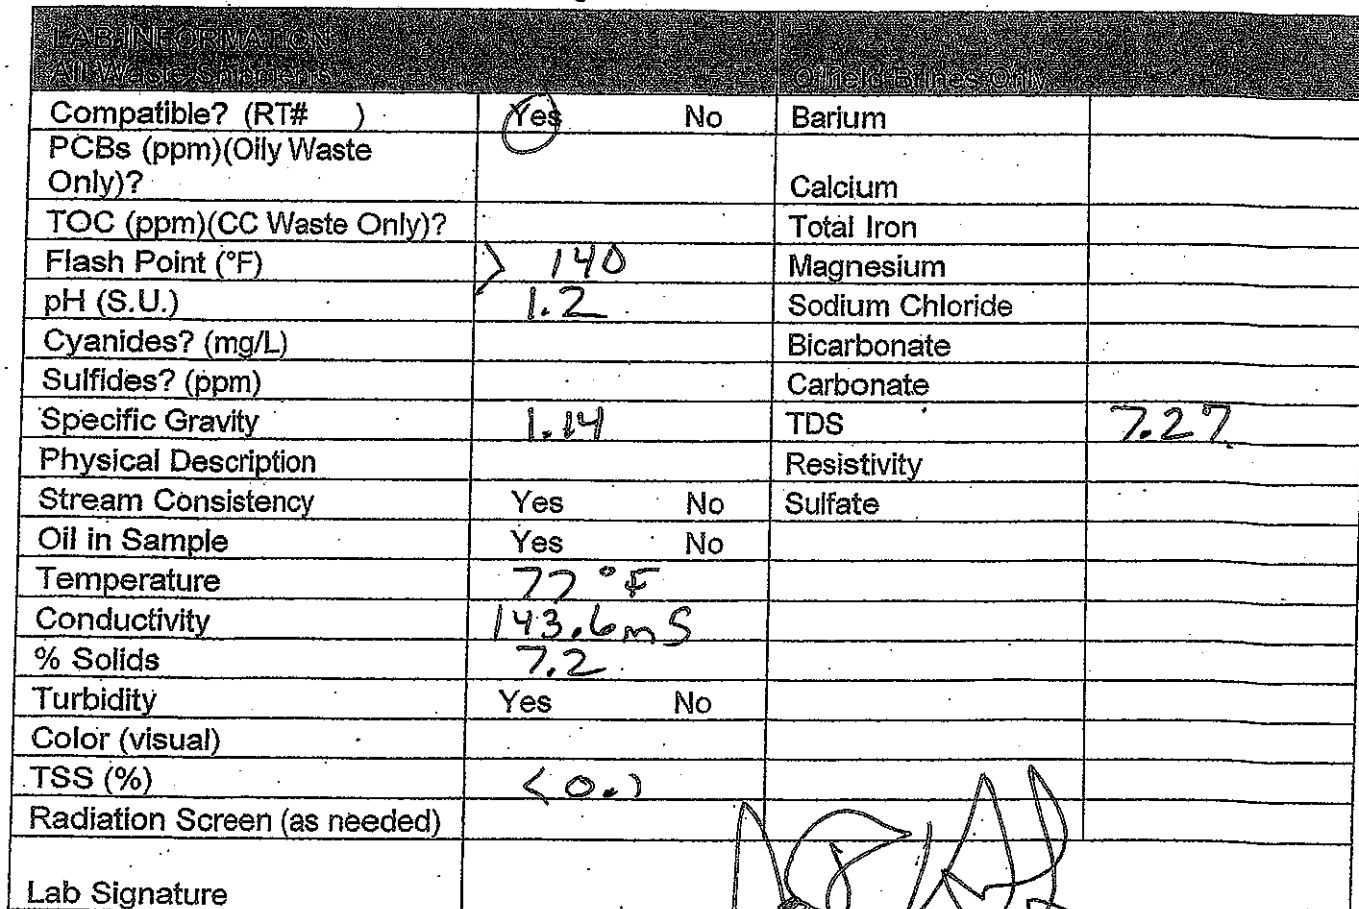 LAB INFORMATION
All Waste Shipments Oilfield Brines Only
Compatible? (RT# ) Yes No Barium
PCBs (ppm)(Oily Waste
Only)? Calcium
TOC (ppm)(CC Waste Only)? Total Iron
Flash Point (°F) > 140 Magnesium
pH (S.U.) 1.2 Sodium Chloride
Cyanides? (mg/L) Bicarbonate
Sulfides? (ppm) Carbonate
Specific Gravity 1.14 TDS 7.27
Physical Description Resistivity
Stream Consistency Yes No Sulfate
Oil in Sample Yes No
Temperature 77 °F
Conductivity 143.6 mS
% Solids 7.2
Turbidity Yes No
Color (visual)
TSS (%) <0.1
Radiation Screen (as needed)
Lab Signature